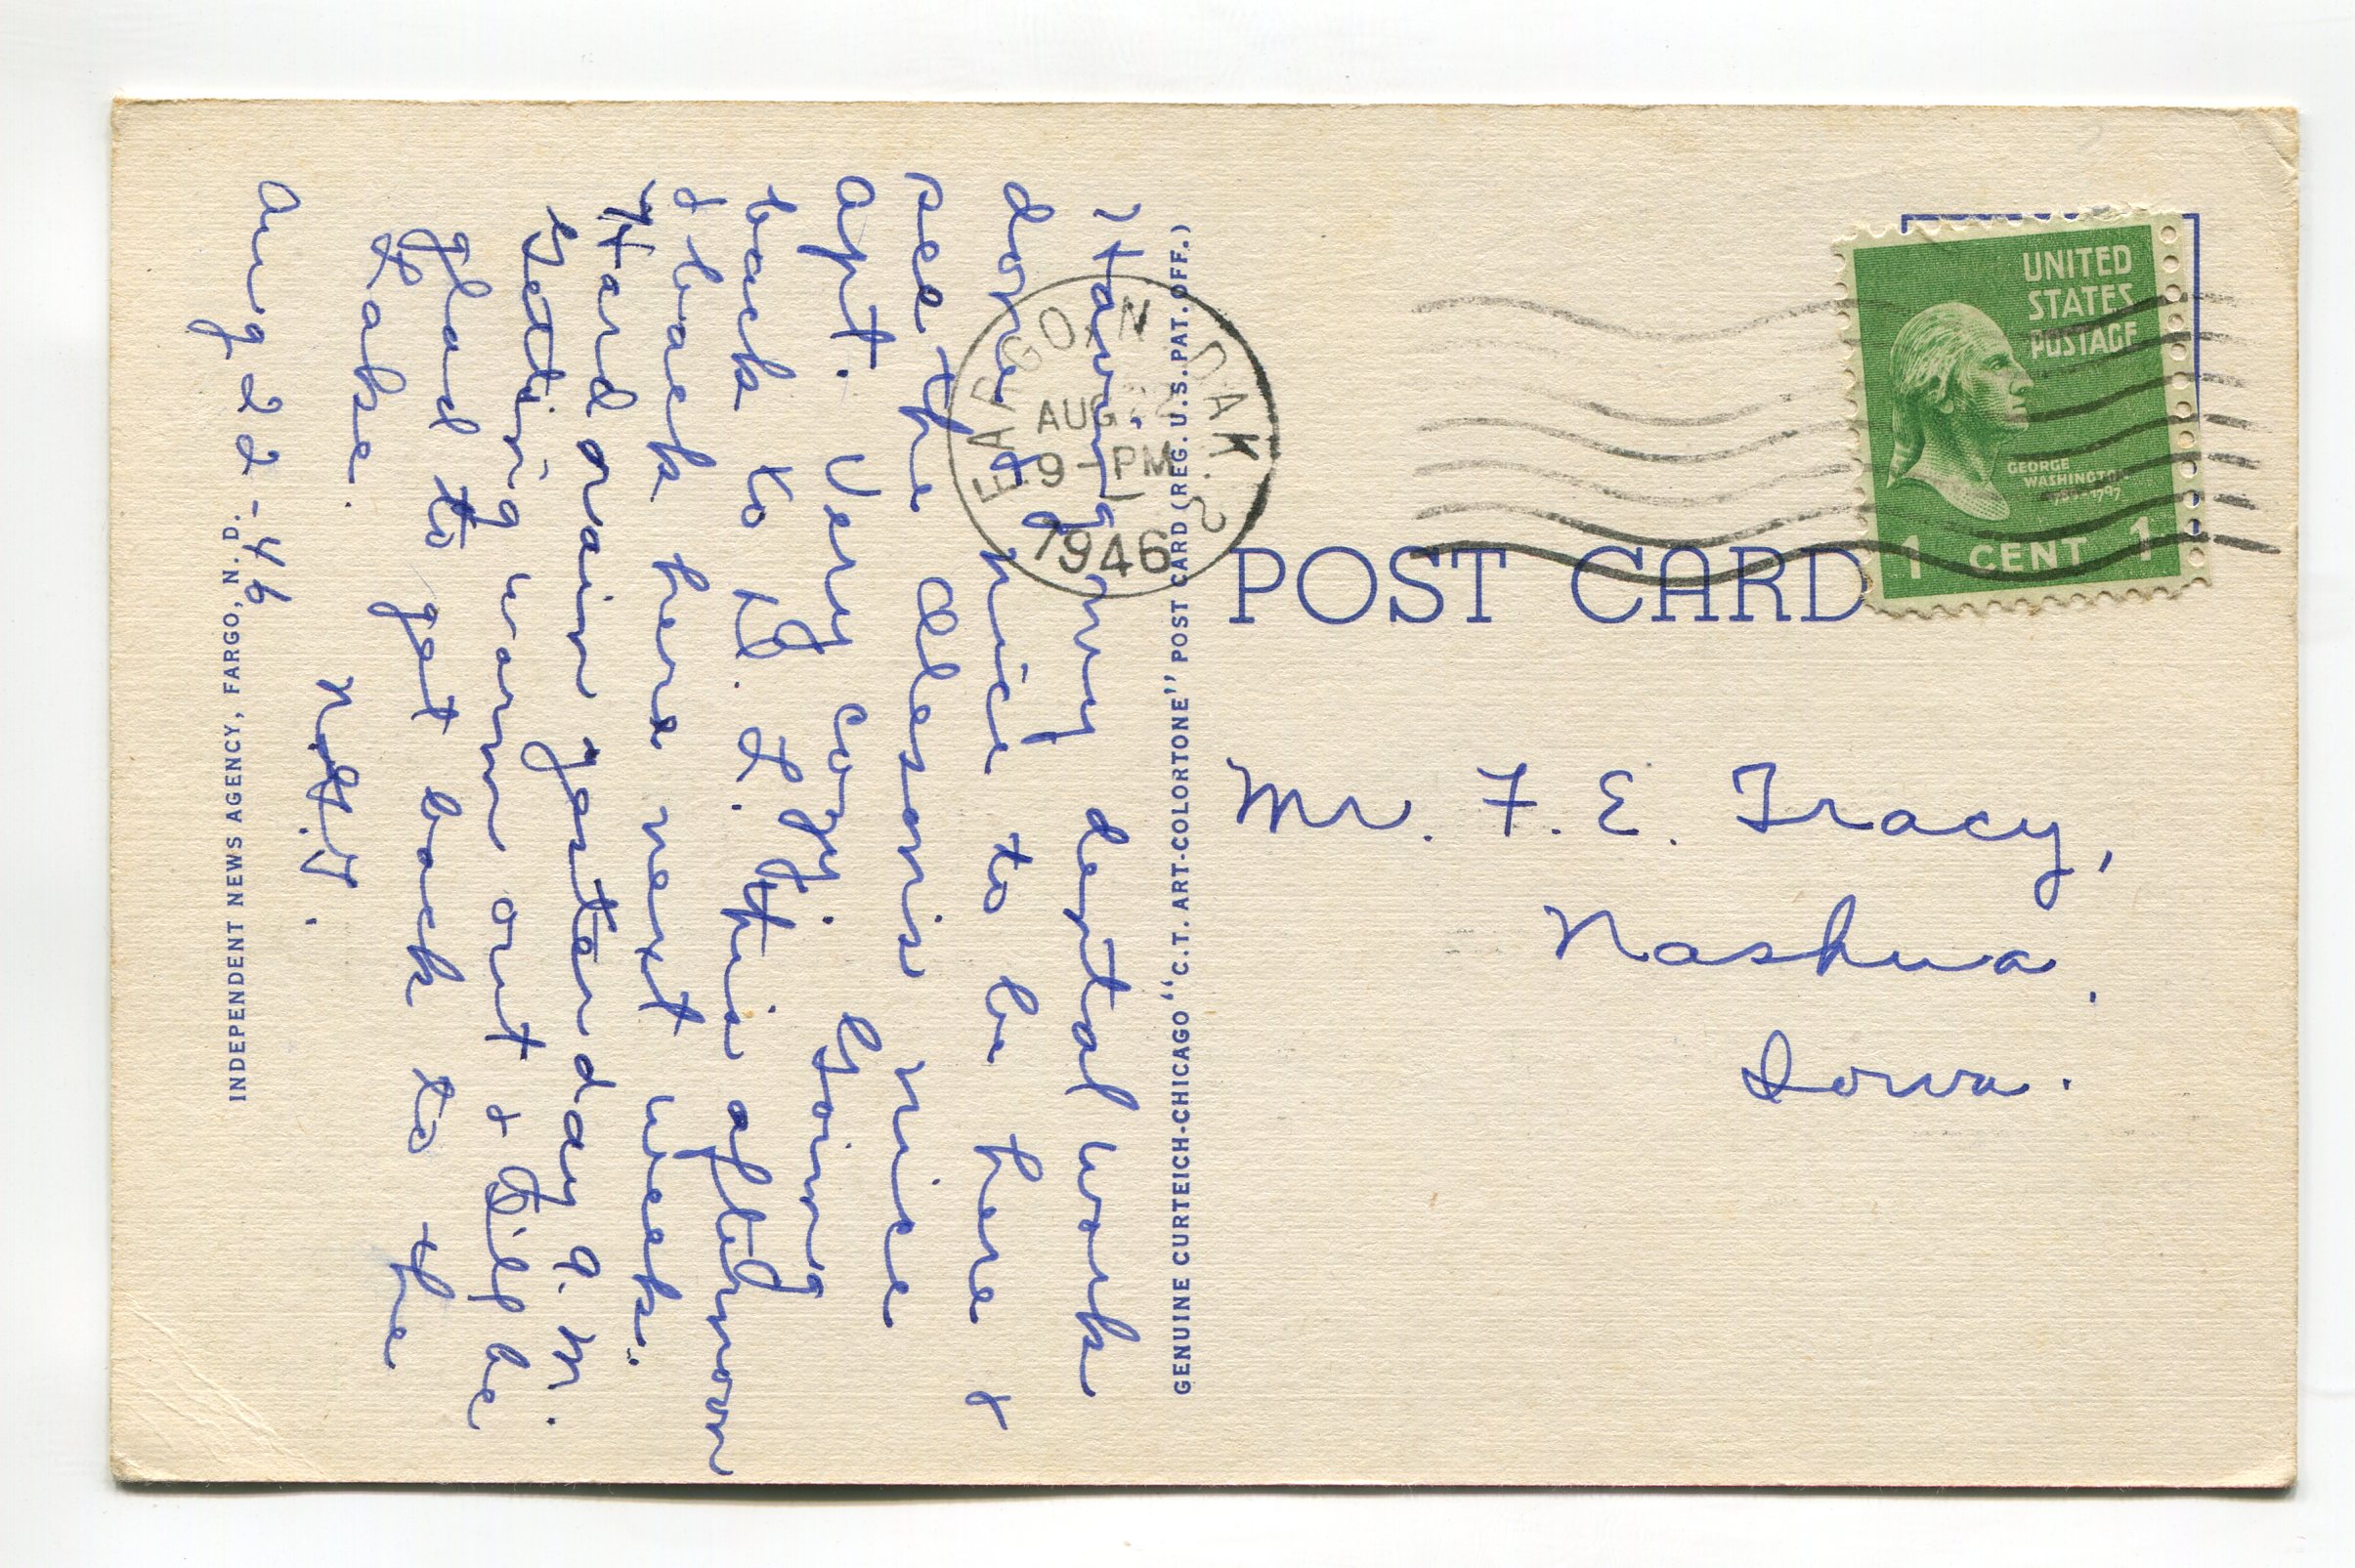 Having my dental work
done & nice to be here &
see the Alesons nice
apt. Very cozy. Going
back to P.L. this afternoon
& back here next week.
Hard rain yesterday A. M.
Getting warm out & I'll be
glad to get back to the
Lake.
Aug 22-46
INDEPENDENT NEWS AGENCY, FARGO, N. D.
GENUINE CURTEICH-CHICAGO "C.T. ART-COLORTONE" POST CARD (REG. U.S. PAT. OFF.)
FARGO, N. DAK.
AUG 22
9 - PM
1946
UNITED
STATES
POSTAGE
GEORGE
WASHINGTON
1789-1797
1 CENT 1
POST CARD
Mr. F. E. Tracy,
Nashua,
Iowa.